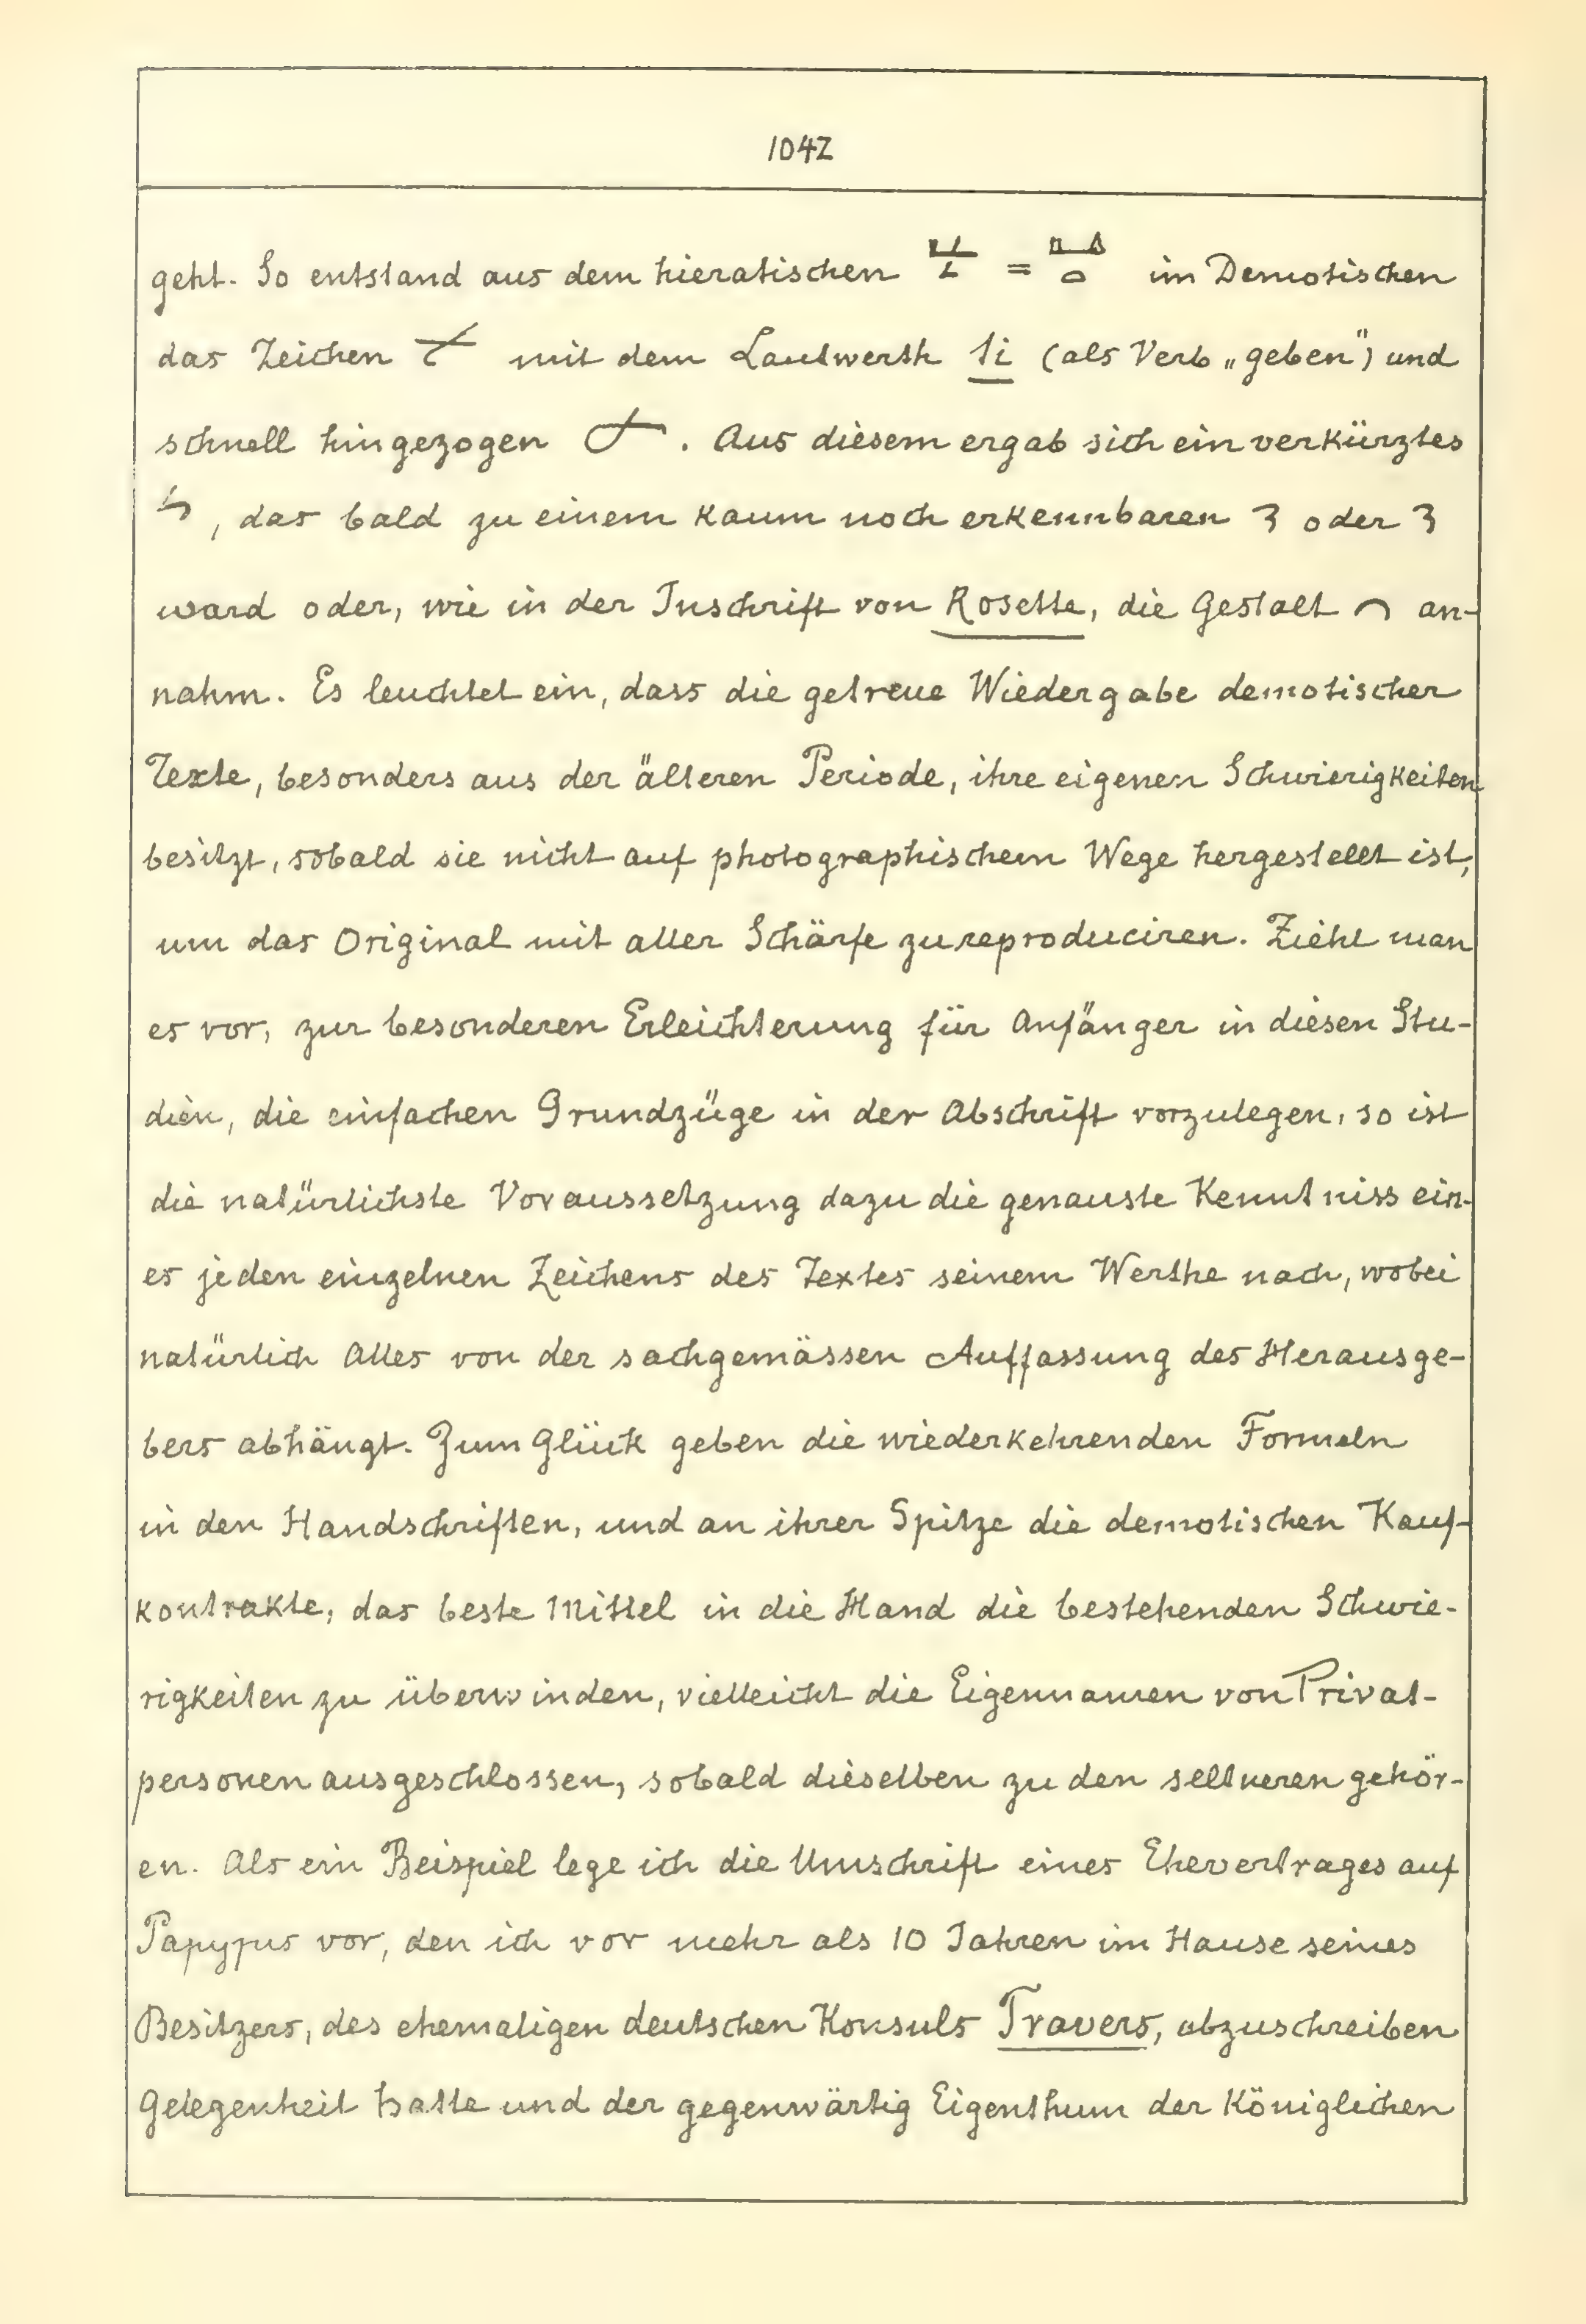 1042
geht. So entstand aus dem hieratischen = im Demotischen
das Zeichen mit dem Lautwerth ti (als Verb „geben") und
schnell hingezogen . Aus diesem ergab sich ein verkürztes
, das bald zu einem kaum noch erkennbaren 3 oder 3
ward oder, wie in der Inschrift von Rosette, die Gestalt an-
nahm. Es leuchtet ein, dass die getreue Wiedergabe demotischer
Texte, besonders aus der älteren Periode, ihre eigenen Schwierigkeiten
besitzt, sobald sie nicht auf photographischem Wege hergestellt ist,
um das Original mit aller Schärfe zu reproduciren. Zieht man
es vor, zur besonderen Erleichterung für Anfänger in diesen Stu-
dien, die einfachen Grundzüge in der Abschrift vorzulegen, so ist
die natürlichste Voraussetzung dazu die genauste Kenntniss ein-
es jeden einzelnen Zeichens des Textes seinem Werthe nach, wobei
natürlich Alles von der sachgemässen Auffassung des Herausge-
bers abhängt. Zum Glück geben die wiederkehrenden Formeln
in den Handschriften, und an ihrer Spitze die demotischen Kauf-
kontrakte, das beste Mittel in die Hand die bestehenden Schwie-
rigkeiten zu überwinden, vielleicht die Eigennamen von Privat-
personen ausgeschlossen, sobald dieselben zu den seltneren gehör-
en. Als ein Beispiel lege ich die Umschrift eines Ehevertrages auf
Papypus vor, den ich vor mehr als 10 Jahren im Hause seines
Besitzers, des ehemaligen deutschen Konsuls Travers, abzuschreiben
Gelegenheit hatte und der gegenwärtig Eigenthum der Königlichen